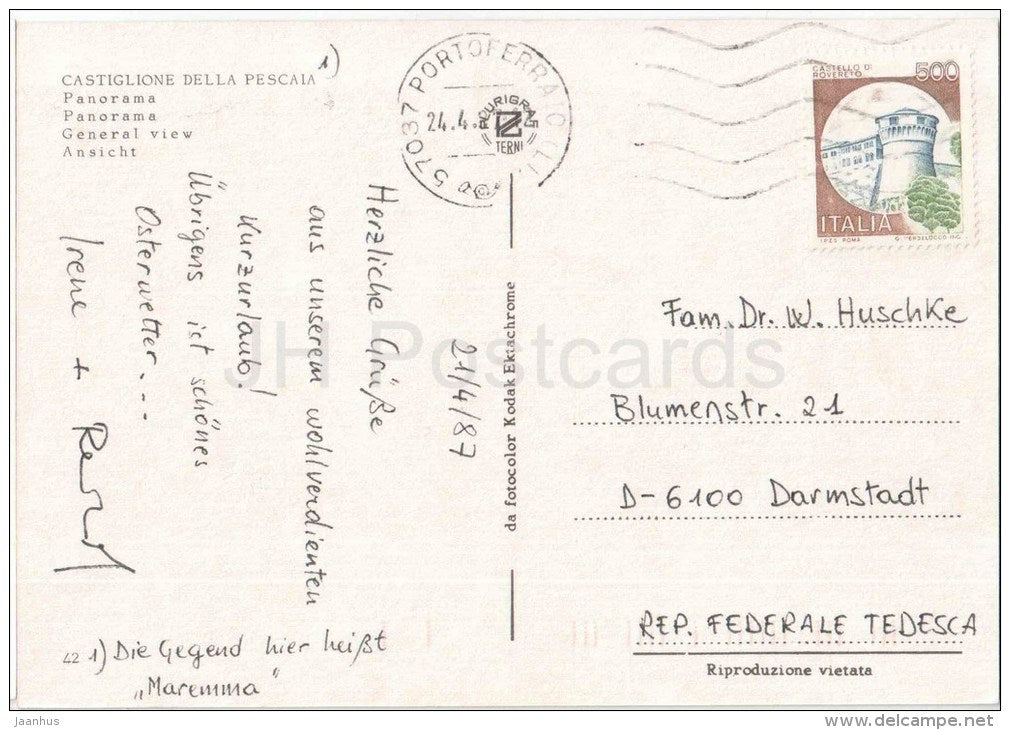 CASTIGLIONE DELLA PESCAIA 1)
Panorama
Panorama
General view
Ansicht
57037 PORTOFERRAIO (LI)
24.4.
PLURIGRAF
TERNI
CASTELLO DI
ROVERETO
500
ITALIA
I.P.Z.S. ROMA
21/4/87
Herzliche Grüße
aus unserem wohlverdienten
Kurzurlaub!
Übrigens ist schönes
Osterwetter...
Irene +
42 1) Die Gegend hier heißt
„Maremma"
da fotocolor Kodak Ektachrome
Fam. Dr. W. Huschke
Blumenstr. 21
D-6100 Darmstadt
REP. FEDERALE TEDESCA
Riproduzione vietata
JH Postcards
Jaanhus
www.delcampe.net